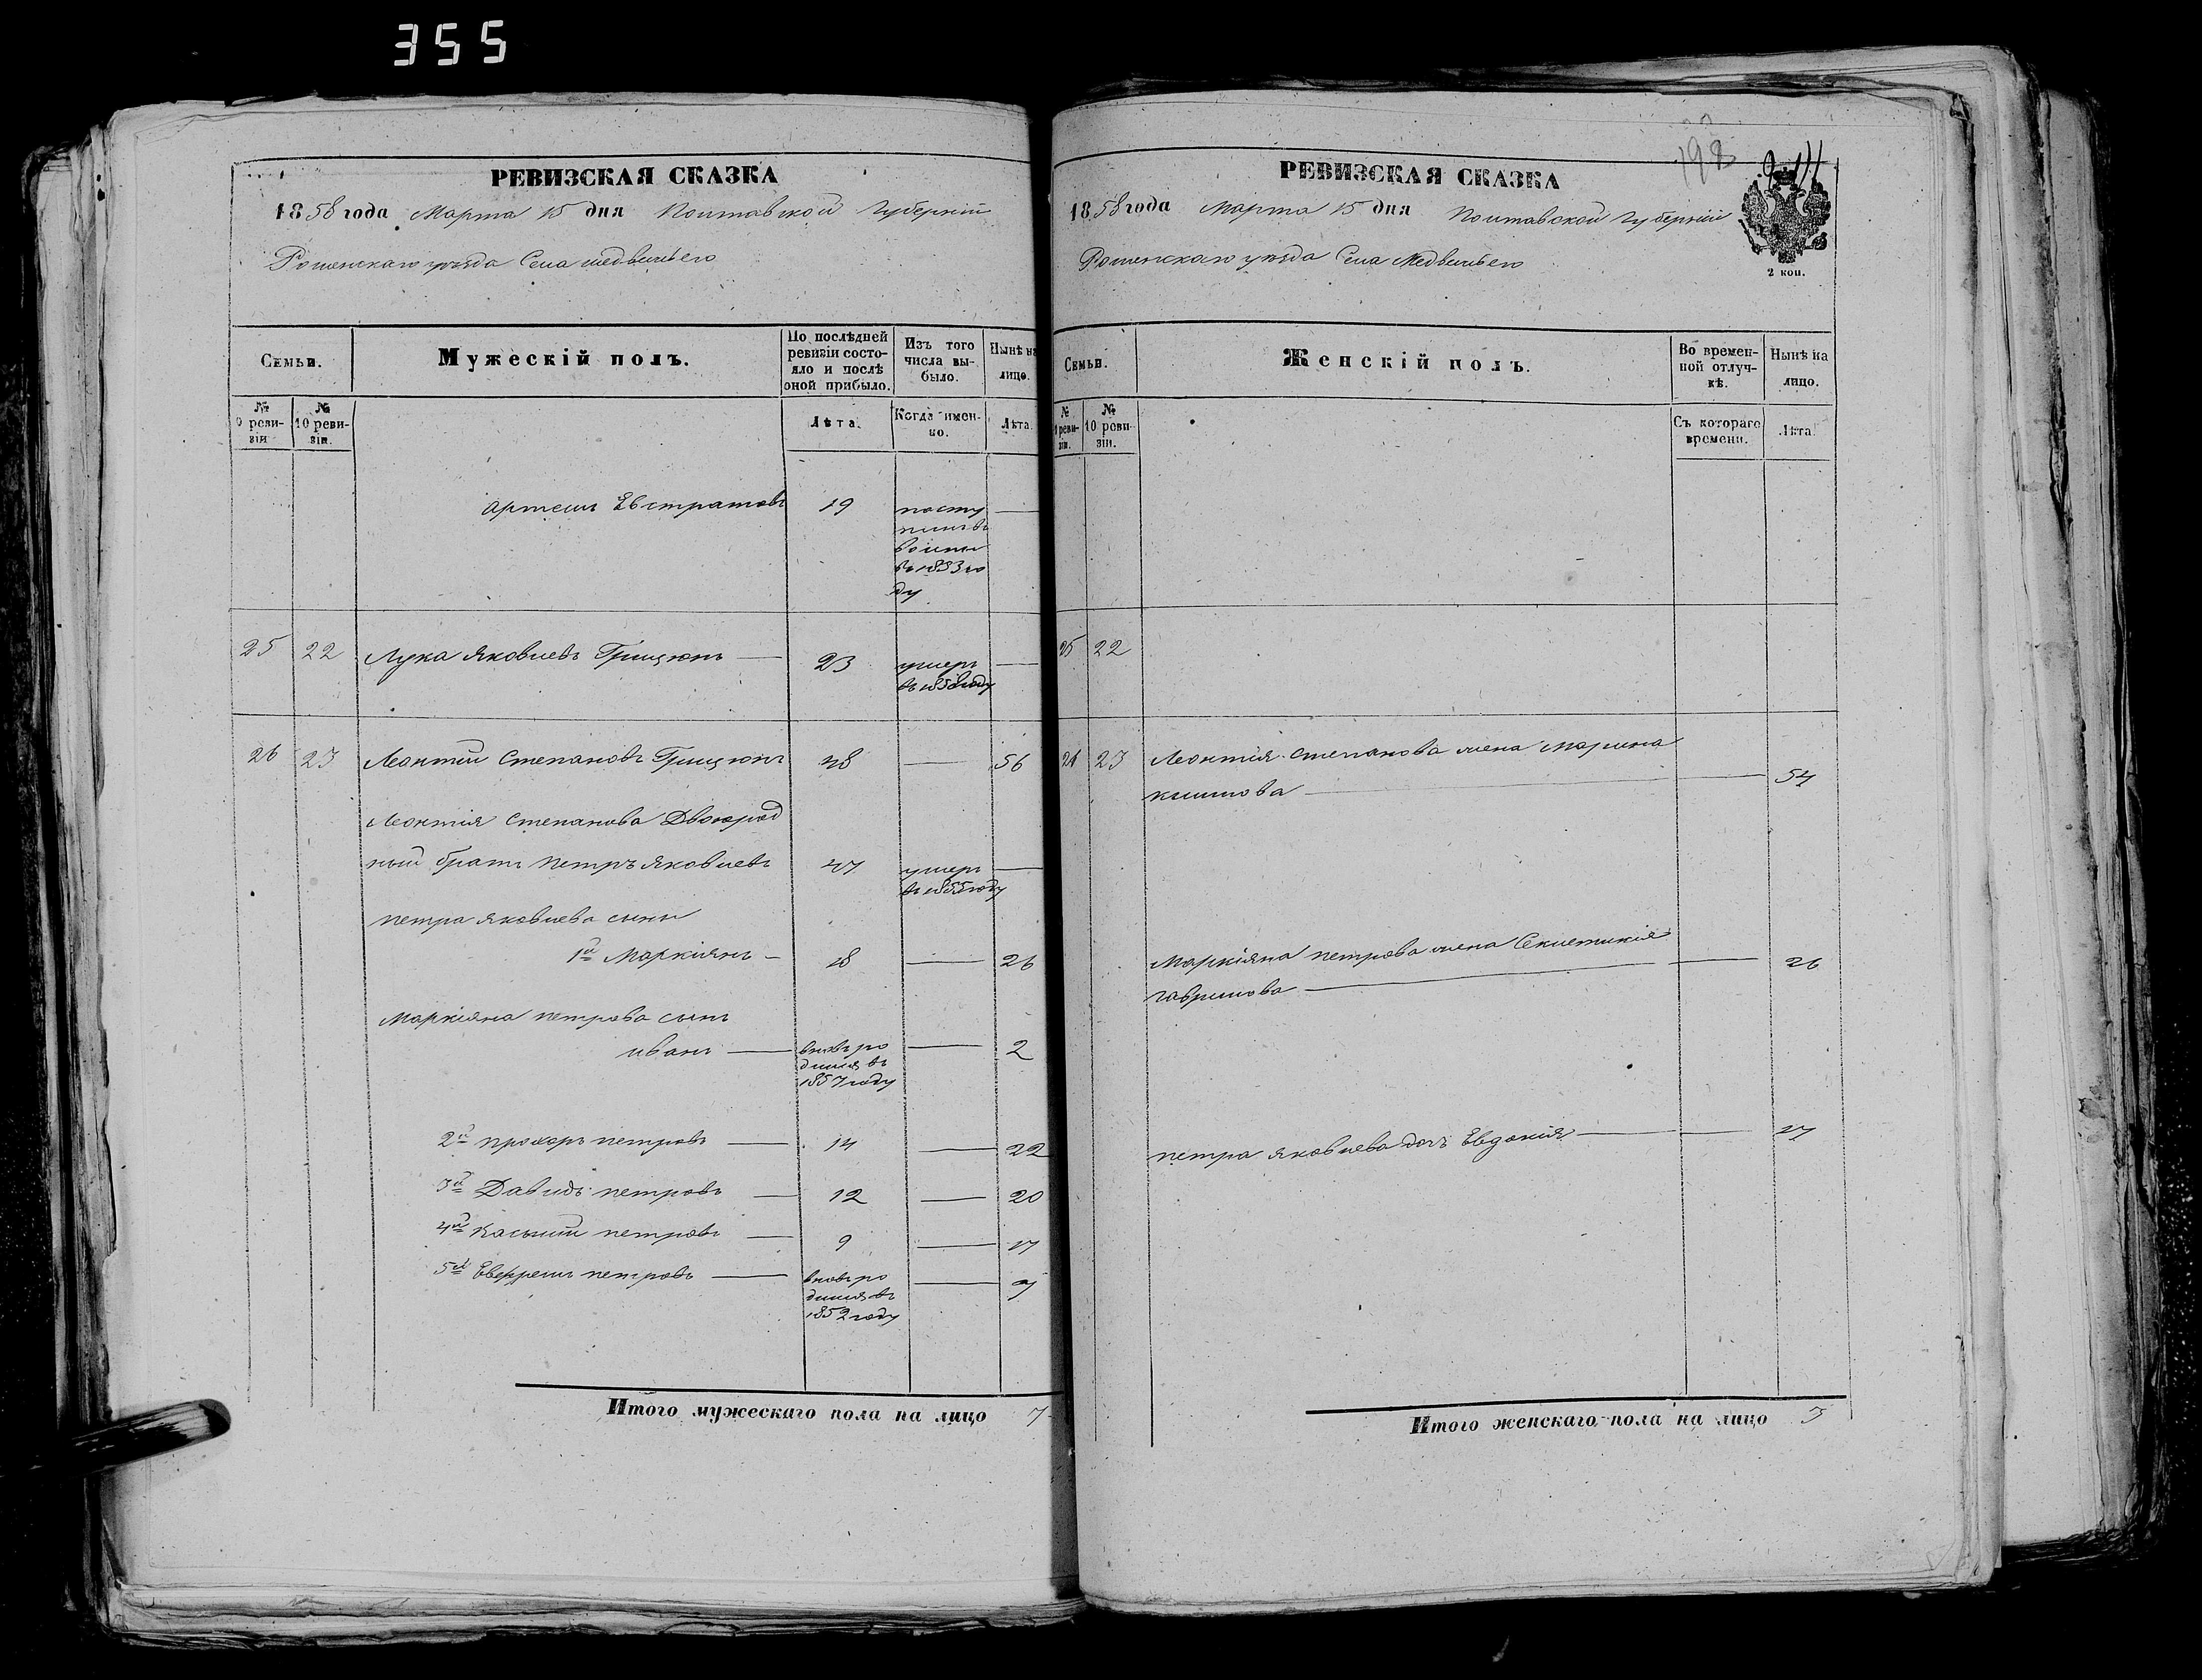 355
РЕВИЗСКАЯ СКАЗКА
1858 года Марта 15 дня Полтавской Губерніи
Роменскаго уѣзда Села Медвежьего
Семьи.
Мужескій полъ.
По послѣдней
ревизіи состо-
яло и послѣ
оной прибыло.
Изъ того
числа вы-
было.
Нынѣ на
лицо.
№
9 реви-
зіи
№
10 реви-
зіи.
Лѣта.
Когда имен-
но.
Лѣта.
Артемъ Евстратовъ 19 посту
пилъ въ
въ 1853 го
ду —
25 22 Лука Яковлевъ Грицюнъ — 23 умеръ —
26 23 Леонтій Степановъ Грицюнъ 48 — 56
Леонтія Степанова Двоюрод
ный братъ Петръ Яковлевъ 47 умеръ —
въ 1855 году
Петра Яковлева сыны
1й Маркіянъ — 18 — 26
Маркіяна Петрова сынъ
Иванъ — вновь ро — 2
дился въ
1857 году
2й Прохоръ Петровъ — 14 — 22
3й Давидъ Петровъ — 12 — 20
4й Касьянъ Петровъ — 9 — 17
5й Евфремъ Петровъ — вновь ро — 7
дился въ
1852 году
Итого мужескаго пола на лицо 7
198
РЕВИЗСКАЯ СКАЗКА
1858 года Марта 15 дня Полтавской Губерніи
Роменскаго уѣзда Села Медвежьего
2 коп.
Семьи.
Женскій полъ.
Во времен-
ной отлуч-
кѣ.
Нынѣ на
лицо.
№
9 реви-
зіи.
№
10 реви
зіи.
Съ котораго
времени.
Лѣта.
25 22
26 23 Леонтія Степанова жена Марина
Климова — — 54
Маркіяна Петрова жена
Гаврилова — — 26
Петра Яковлева дочь Евдокія — — 17
Итого женскаго пола на лицо 3